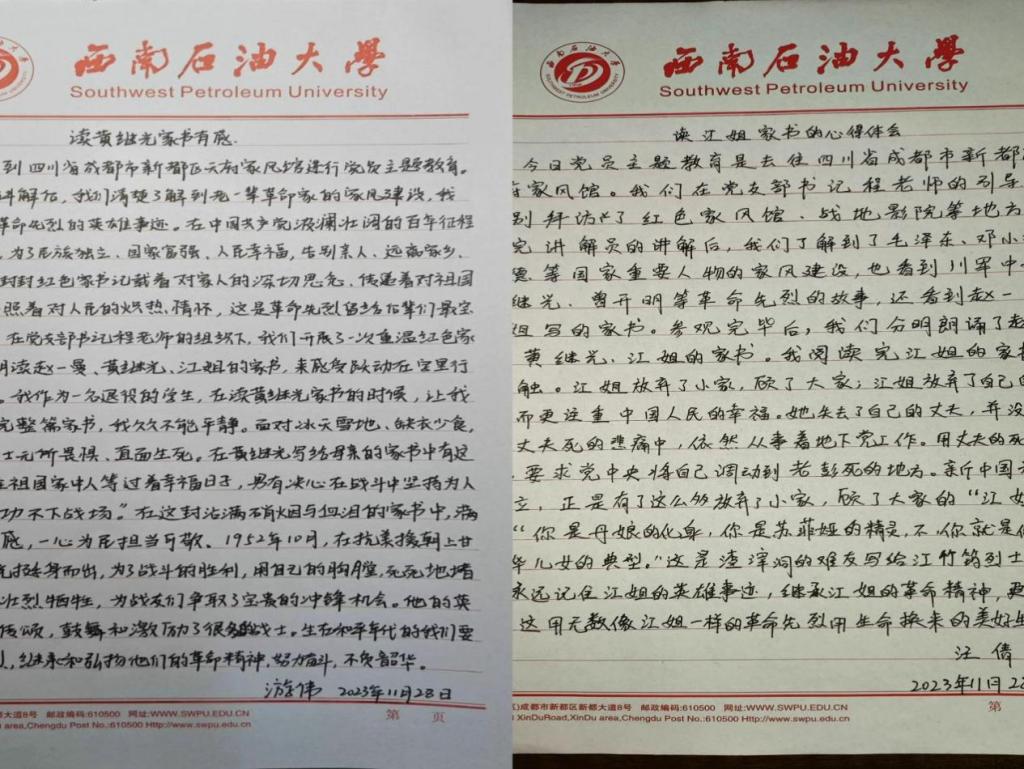 西南石油大學
Southwest Petroleum University
读黄继光家书有感
到四川省成都市新都区天府家风馆进行党员主题教育。
讲解后，我们清楚了解到老一辈革命家的家风建设，我
革命先烈的英雄事迹。在中国共产党波澜壮阔的百年征程
，为了民族独立、国家富强、人民幸福，告别亲人、远离家乡、
封封红色家书记载着对家人的深切思念、传递着对祖国
照着对人民的炽热情怀，这是革命先烈留给后辈们最宝
在党支部书记程老师的组织下，我们开展了一次重温红色家
朗读赵一曼、黄继光、江姐的家书，来感受跃动在字里行
。我作为一名退役的学生，在读黄继光家书的时候，让我
完整篇家书，我久久不能平静。面对冰天雪地、缺衣少食，
士无所畏惧、直面生死。在黄继光写给母亲的家书中有这
在祖国家中人等过着幸福日子，男有决心在战斗中坚持为人
功不下战场。"在这封沾满硝烟与血泪的家书中，满
感，一心为民担当可敬、1952年10月，在抗美援朝上甘
光挺身而出，为了战斗的胜利，用自己的胸膛，死死地堵
壮烈牺牲，为战友们争取了宝贵的冲锋机会。他的英
传颂，鼓舞和激励了很多战士。生在和平年代的我们要
，继承和弘扬他们的革命精神，努力奋斗，不负韶华。
游伟 2023年11月28日
都大道8号 邮政编码:610500 网址:WWW.SWPU.EDU.CN
area,Chengdu Post No.:610500 Http://WWW.SWPU.EDU.CN
第 页
西南石油大學
Southwest Petroleum University
读江姐家书的心得体会
今日党员主题教育是去往四川省成都市新都
府家风馆。我们在党支部书记程老师的引导
别拜访了红色家风馆、战地影院等地方
完讲解员的讲解后，我们了解到了毛泽东、邓小
德等国家重要人物的家风建设，也看到川军中
继光、曾开明等革命先烈的故事，还看到赵一
姐写的家书。参观完毕后，我们分明朗诵了赵
黄继光、江姐的家书。我阅读完江姐的家书
触。江姐放弃了小家，顾了大家；江姐放弃了自己的
而更注重中国人民的幸福。她失去了自己的丈夫，并没
丈夫死的悲痛中，依然从事着地下党工作。用丈夫的死
要求党中央将自己调动到老彭死的地方。新中国
立，正是有了这么多放弃了小家，顾了大家的"江姐
"你是丹娘的化身，你是苏菲娅的精灵，不，你就是你
华儿女的典型。"这是渣滓洞的难友写给江竹筠烈士
永远记住江姐的英雄事迹，继承江姐的革命精神，更
这用无数像江姐一样的革命先烈用生命换来的美好生
汪倩
2023年11月28
成都市新都区新都大道8号 邮政编码:610500 网址:WWW.SWPU.EDU.CN
XinDuRoad,XinDu area,Chengdu Post No.:610500 Http://WWW.SWPU.EDU.CN
第